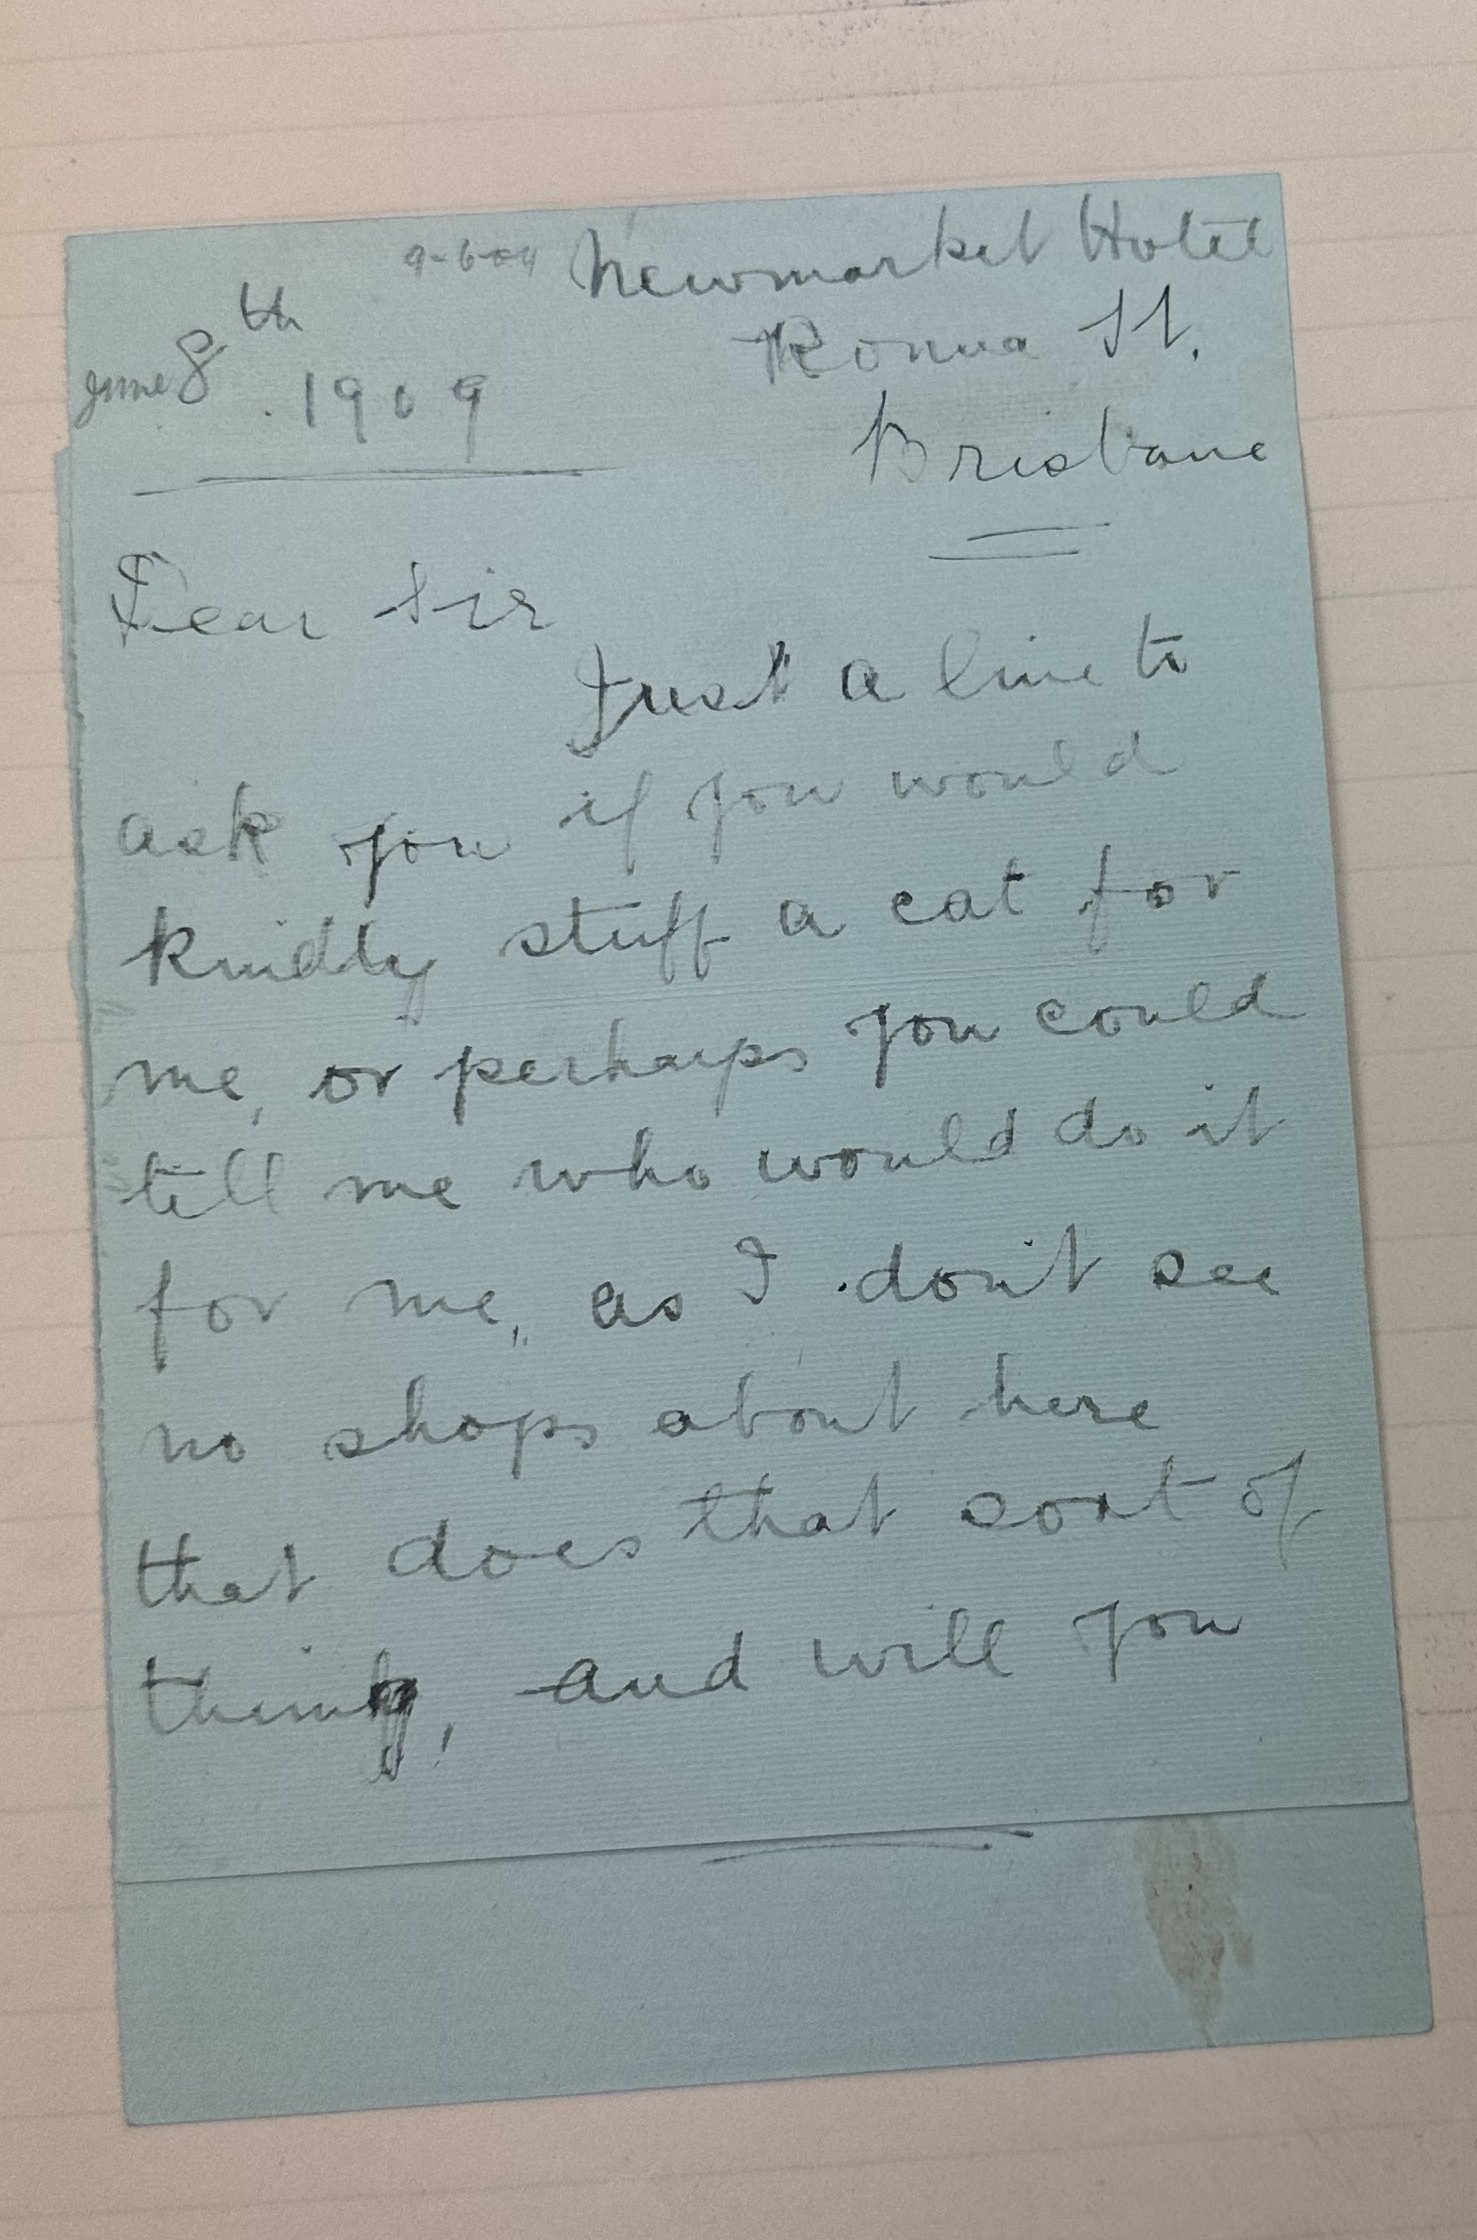 9-6-09 Newmarket Hotel
Roma St.
June 8th. 1909
Brisbane
Dear Sir
Just a line to
ask you if you would
kindly stuff a cat for
me, or perhaps you could
tell me who would do it
for me, as I don't see
no shops about here
that does that sort of
thing, and will you